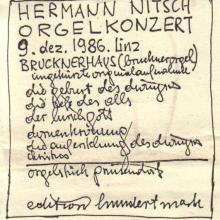 HERMANN NITSCH
ORGELKONZERT
9. dez. 1986. Linz
BRUCKNERHAUS (Brucknerorgel)
ungekürzte originalaufnahme
die geburt des dionysos
die fülle des alls
der
dornenkrönung
die auferstehung des dionysos
orgelstück prinzendorf
edition hundertmark